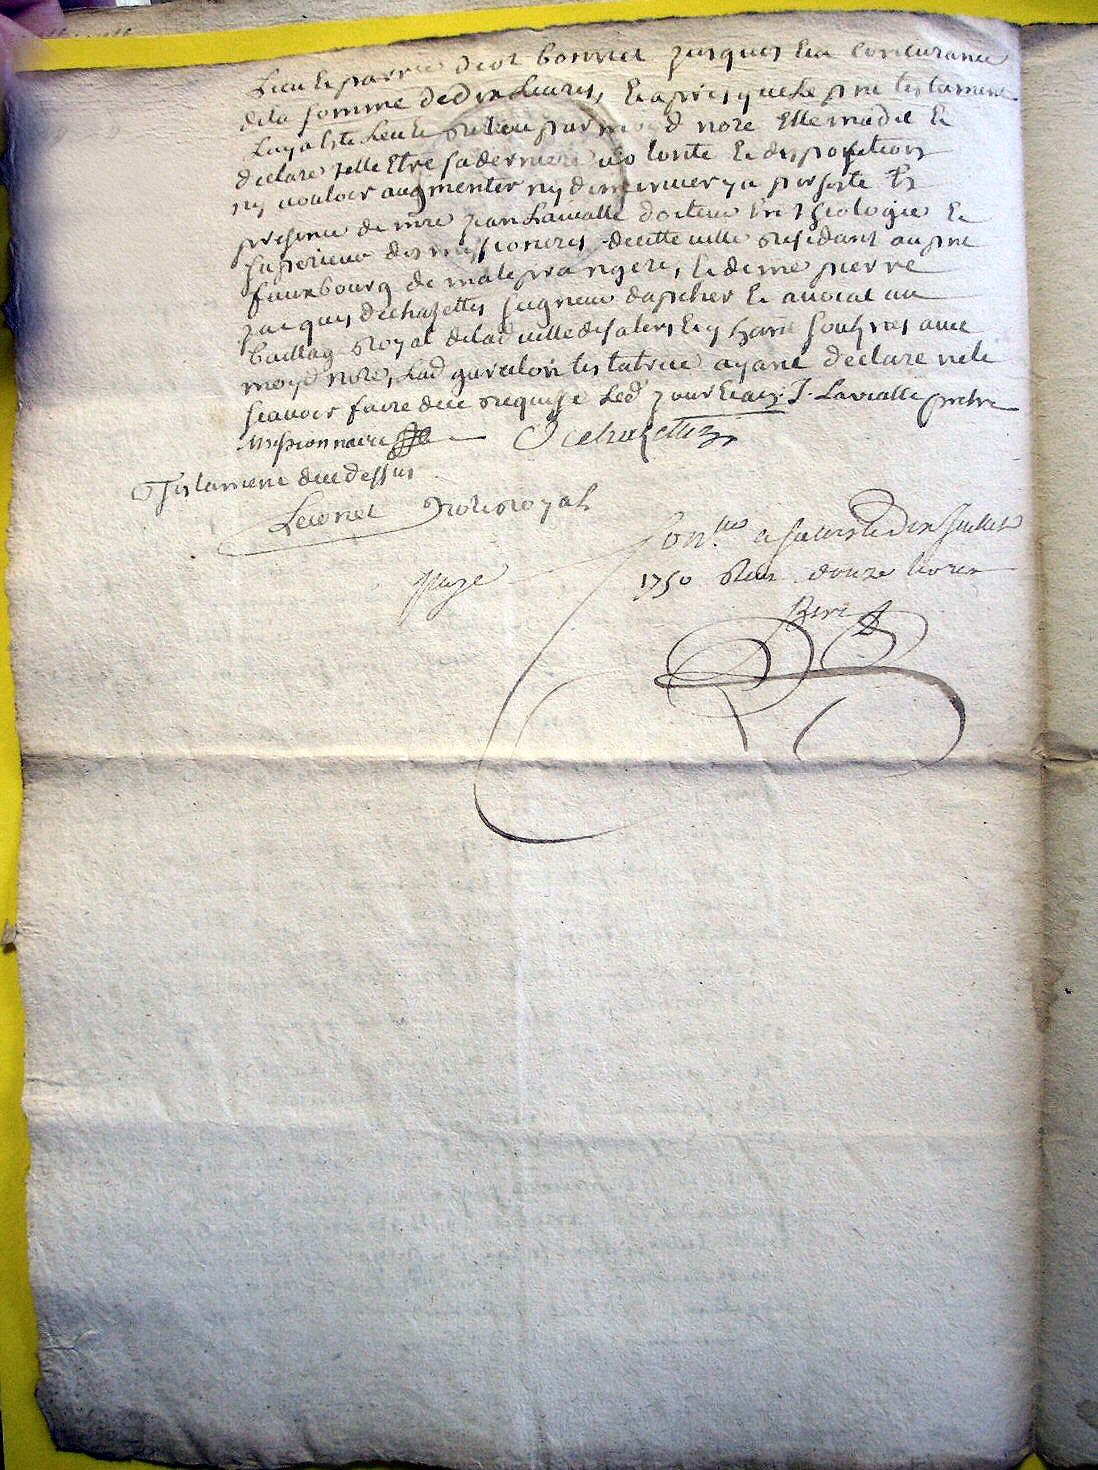 jusques a la concurance
de la somme de dix Livres, Et apres que le pnt testament
Luy a este Leu et releu par moyd nore Elle ma dit Et
declaré Telle Etre sa derniere volonte Et disposition
ny vouloir augmenter ny diminuer y a persisté En
presence de mre jean Lavialle docteur En Theologie Et
superieur des missioneres de cette ville residant au pnt
fauxbourg de maleprangere, Et de me pierre
jacques dechazettes seigneur dapcher Et avocat au
bailliage Royal de lad ville de salers Et y habt soussignes avec
moyd nore, Lad testatrice ayant declaré ne le
scavoir faire de ce requise Led jour Et an J. Lavialle pretre
Missionnaire
Dechazettes
Testament de dessus
Leconet Nore royal
Con.lle a salers le dix Juillet
paye
1750 Reçu douze livres